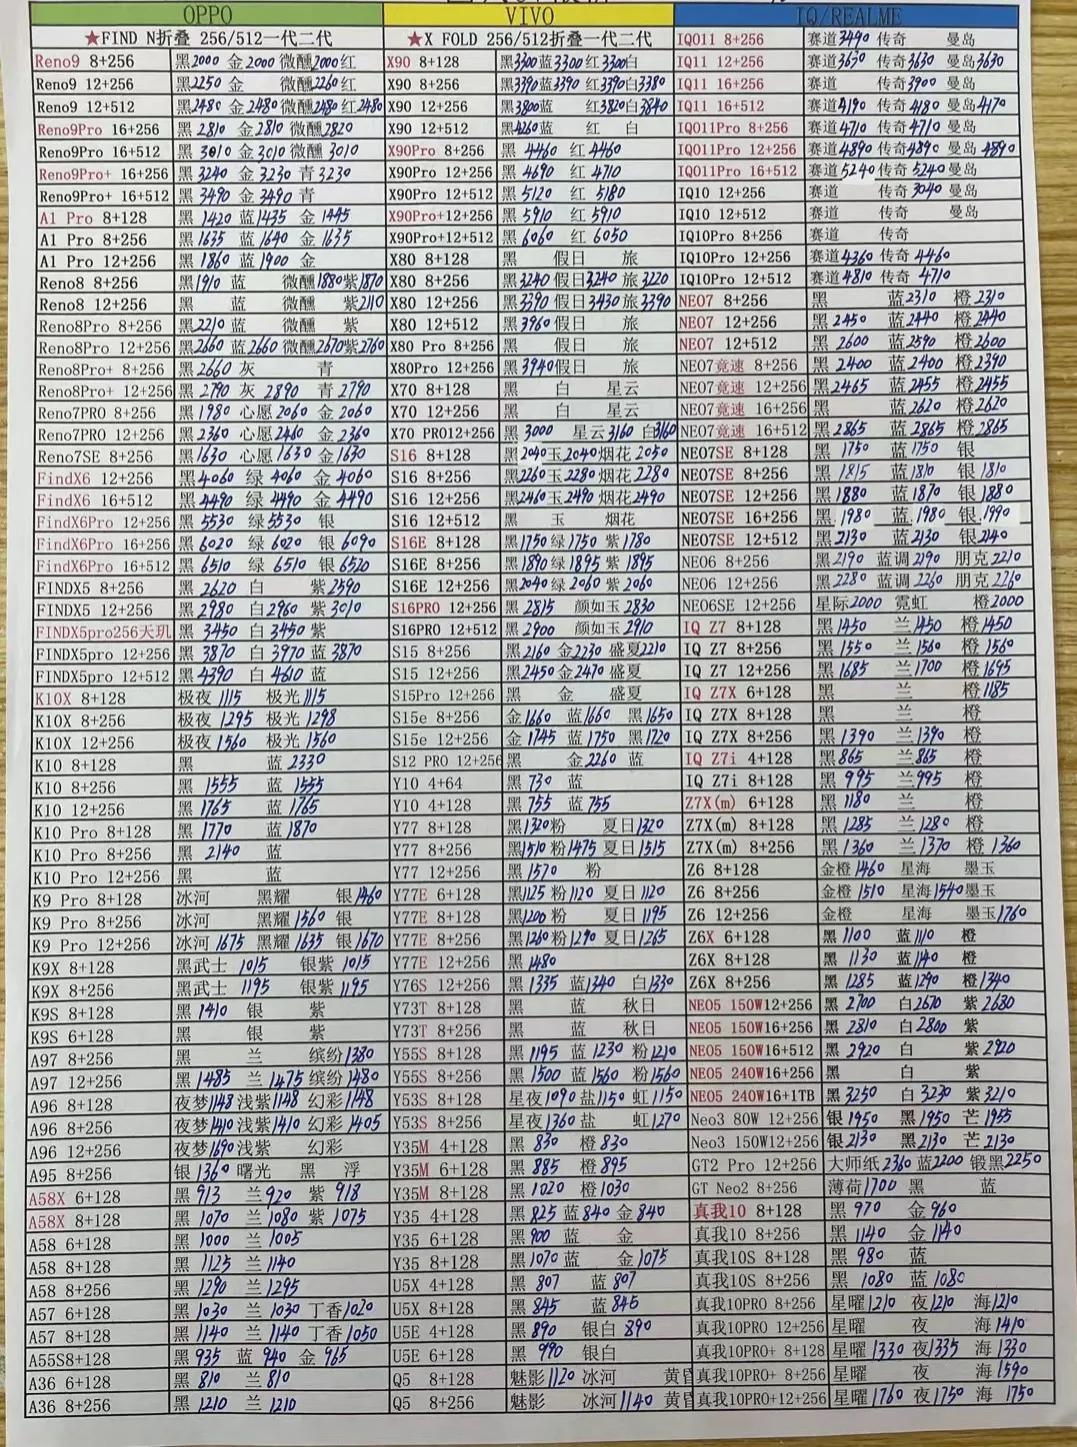 OPPO VIVO IQ/REALME
★FIND N折叠 256/512一代二代 ★X FOLD 256/512折叠一代二代 IQ011 8+256 赛道3490 传奇 曼岛
Reno9 8+256 黑2000 金2000 微醺2000红 X90 8+128 黑3300蓝3300红3300白 IQ11 12+256 赛道3630 传奇3630 曼岛3630
Reno9 12+256 黑2250 金 微醺2260红 X90 8+256 黑3390蓝3390 红3390白3380 IQ11 16+256 赛道 传奇3900 曼岛
Reno9 12+512 黑2480 金2480微醺2480红2480 X90 12+256 黑3800蓝 红3820白3840 IQ11 16+512 赛道4190 传奇4180 曼岛4170
Reno9Pro 16+256 黑2810 金2810 微醺2820 X90 12+512 黑4260蓝 红 白 IQ011Pro 8+256 赛道4710 传奇4710 曼岛
Reno9Pro 16+512 黑3010 金3010 微醺3010 X90Pro 8+256 黑 4460 红4460 IQ011Pro 12+256 赛道4890 传奇4890 曼岛4890
Reno9Pro+ 16+256 黑3240 金3230 青3230 X90Pro 12+256 黑 4690 红 4710 IQ011Pro 16+512 赛道5240 传奇5240 曼岛
Reno9Pro+ 16+512 黑3490 金3490 青 X90Pro 12+512 黑 5120 红 5180 IQ10 12+256 赛道 传奇3040 曼岛
A1 Pro 8+128 黑1420 蓝1435 金1445 X90Pro+12+256 黑 5910 红 5910 IQ10 12+512 赛道 传奇 曼岛
A1 Pro 8+256 黑1635 蓝1640 金1635 X90Pro+12+512 黑 6060 红 6050 IQ10Pro 8+256 赛道 传奇
A1 Pro 12+256 黑1860 蓝1900 金 X80 8+128 黑 假日 旅 IQ10Pro 12+256 赛道4360 传奇4460
Reno8 8+256 黑1910 蓝 微醺1880紫1870 X80 8+256 黑3240 假日3240 旅3220 IQ10Pro 12+512 赛道4810 传奇 4710
Reno8 12+256 黑 蓝 微醺 紫2110 X80 12+256 黑3390 假日3430旅3390 NEO7 8+256 黑 蓝2310 橙2310
Reno8Pro 8+256 黑2210 蓝 微醺 紫 X80 12+512 黑3960假日 旅 NEO7 12+256 黑2450 蓝2440 橙2440
Reno8Pro 12+256 黑2660 蓝2660 微醺2670紫2760 X80 Pro 8+256 黑 假日 旅 NEO7 12+512 黑2600 蓝2590 橙2600
Reno8Pro+ 8+256 黑2660 灰 青 X80Pro 12+256 黑3940假日 旅 NEO7竞速 8+256 黑2400 蓝2400 橙2390
Reno8Pro+ 12+256 黑2790 灰 2890 青2790 X70 8+128 黑 白 星云 NEO7竞速 12+256 黑2465 蓝2455 橙2455
Reno7PRO 8+256 黑1980 心愿2060 金2060 X70 12+256 黑 白 星云 NEO7竞速 16+256 黑 蓝2620 橙2620
Reno7PRO 12+256 黑2360 心愿2460 金2360 X70 PRO12+256 黑3000 星云3160 白3160 NEO7竞速 16+512 黑2865 蓝2865 橙2865
Reno7SE 8+256 黑1630 心愿1630 金1630 S16 8+128 黑2040玉2040烟花2050 NEO7SE 8+128 黑1750 蓝1750 银
FindX6 12+256 黑4060 绿4060 金4060 S16 8+256 黑2260玉2280烟花2280 NEO7SE 8+256 黑1815 蓝1810 银1810
FindX6 16+512 黑4490 绿4490 金4490 S16 12+256 黑2460玉2490 烟花2490 NEO7SE 12+256 黑1880 蓝1870 银1880
FindX6Pro 12+256 黑5530 绿5530 银 S16 12+512 黑 玉 烟花 NEO7SE 16+256 黑1980 蓝1980 银1990
FindX6Pro 16+256 黑6020 绿6020 银6090 S16E 8+128 黑1750绿1750紫1780 NEO7SE 12+512 黑2130 蓝2130 银2140
FindX6Pro 16+512 黑6510 绿6510 银6520 S16E 8+256 黑1890绿1895紫1895 NEO6 8+256 黑2190 蓝调2190 朋克2210
FINDX5 8+256 黑2620 白 紫2590 S16E 12+256 黑2040绿2060紫2060 NEO6 12+256 黑2280 蓝调2260 朋克2260
FINDX5 12+256 黑2980 白2960 紫3010 S16PRO 12+256 黑2815 颜如玉2830 NEO6SE 12+256 星际2000 霓虹 橙2000
FINDX5pro256天玑 黑3450 白3450 紫 S16PRO 12+512 黑2900 颜如玉2910 IQ Z7 8+128 黑1450 兰1450 橙1450
FINDX5pro 12+256 黑3870 白3970 蓝3870 S15 8+256 黑2160 金2230 盛夏2210 IQ Z7 8+256 黑1550 兰1560 橙1560
FINDX5pro 12+512 黑4390 白4610 蓝 S15 12+256 黑2450金2470 盛夏 IQ Z7 12+256 黑1685 兰1700 橙1695
K10X 8+128 极夜1115 极光1115 S15Pro 12+256 黑 金 盛夏 IQ Z7X 6+128 黑 兰 橙1185
K10X 8+256 极夜1295 极光1298 S15e 8+256 金1660 蓝1660 黑1650 IQ Z7X 8+128 黑 兰 橙
K10X 12+256 极夜1560 极光1560 S15e 12+256 金1745 蓝1750 黑1720 IQ Z7X 8+256 黑1390 兰1390 橙
K10 8+128 黑 蓝2330 S12 PRO 12+256 黑 金2260 蓝 IQ Z7i 4+128 黑865 兰865 橙
K10 8+256 黑 1555 蓝 1555 Y10 4+64 黑730 蓝 IQ Z7i 8+128 黑995 兰995 橙
K10 12+256 黑 1765 蓝 1765 Y10 4+128 黑755 蓝755 Z7X(m) 6+128 黑1180 兰 橙
K10 Pro 8+128 黑 1770 蓝1870 Y77 8+128 黑1320粉 夏日1320 Z7X(m) 8+128 黑1285 兰1280 橙
K10 Pro 8+256 黑 2140 蓝 Y77 8+256 黑1510粉1475夏日1515 Z7X(m) 8+256 黑1360 兰1370 橙1360
K10 Pro 12+256 黑 蓝 Y77 12+256 黑1570 粉 Z6 8+128 金橙1460 星海 墨玉
K9 Pro 8+128 冰河 黑耀 银1460 Y77E 6+128 黑1125粉1120 夏日1120 Z6 8+256 金橙1510 星海1540墨玉
K9 Pro 8+256 冰河 黑耀1560 银 Y77E 8+128 黑1200粉 夏日1195 Z6 12+256 金橙 星海 墨玉1760
K9 Pro 12+256 冰河1675 黑耀1635 银1670 Y77E 8+256 黑1260粉1290 夏日1265 Z6X 6+128 黑1100 蓝1110 橙
K9X 8+128 黑武士 1015 银紫1015 Y77E 12+256 黑1480 Z6X 8+128 黑1130 蓝1140 橙
K9X 8+256 黑武士 1195 银紫1195 Y76S 12+256 黑1335 蓝1340 白1330 Z6X 8+256 黑1285 蓝1290 橙1340
K9S 8+128 黑1410 银 紫 Y73T 8+128 黑 蓝 秋日 NEO5 150W12+256 黑2700 白2670 紫2680
K9S 6+128 黑 银 紫 Y73T 8+256 黑 蓝 秋日 NEO5 150W16+256 黑2810 白2800 紫
A97 8+256 黑 兰 缤纷1380 Y55S 8+128 黑1195 蓝1230 粉1210 NEO5 150W16+512 黑2920 白 紫2920
A97 12+256 黑1485 兰1475缤纷1480 Y55S 8+256 黑1500 蓝1560 粉1560 NEO5 240W16+256 黑 白 紫
A96 8+128 夜梦1148浅紫1148 幻彩1148 Y53S 8+128 星夜1090盐1150 虹1150 NEO5 240W16+1TB 黑3250 白3230 紫3210
A96 8+256 夜梦1410浅紫1410 幻彩1405 Y53S 8+256 星夜1360盐 虹1270 Neo3 80W 12+256 银1950 黑1950 芒1955
A96 12+256 夜梦1690浅紫 幻彩 Y35M 4+128 黑830 橙830 Neo3 150W12+256 银2130 黑2130 芒2130
A95 8+256 银1360曙光 黑 浮 Y35M 6+128 黑885 橙895 GT2 Pro 12+256 大师纸2360蓝2200 锻黑2250
A58X 6+128 黑913 兰920 紫918 Y35M 8+128 黑1020 橙1030 GT Neo2 8+256 薄荷1700 黑 蓝
A58X 8+128 黑1070 兰1080 紫1075 Y35 4+128 黑825蓝840金840 真我10 8+128 黑970 金960
A58 6+128 黑1000 兰1005 Y35 8+256 黑900 蓝 金 真我10 8+256 黑1140 金1140
A58 8+128 黑1125 兰1140 Y35 8+128 黑1070蓝 金1075 真我10S 8+128 黑980 蓝
A58 8+256 黑1290 兰1295 U5X 4+128 黑807 蓝807 真我10S 8+256 黑1080 蓝1080
A57 6+128 黑1030 兰1030 丁香1020 U5X 8+128 黑845 蓝845 真我10PRO 8+256 星曜1210 夜1210 海1210
A57 8+128 黑1140 兰1140 丁香1050 U5E 4+128 黑890 银白890 真我10PRO 12+256 星曜 夜 海1410
A55S8+128 黑935 蓝940 金965 U5E 6+128 黑990 银白 真我10PRO+ 8+128 星曜1330 夜1335 海1330
A36 6+128 黑810 兰810 Q5 8+128 魅影1120冰河 黄昏 真我10PRO+ 8+256 星曜 夜 海1590
A36 8+256 黑1210 兰1210 Q5 8+256 魅影 冰河1140 黄昏 真我10PRO+12+256 星曜1760 夜1750 海1750